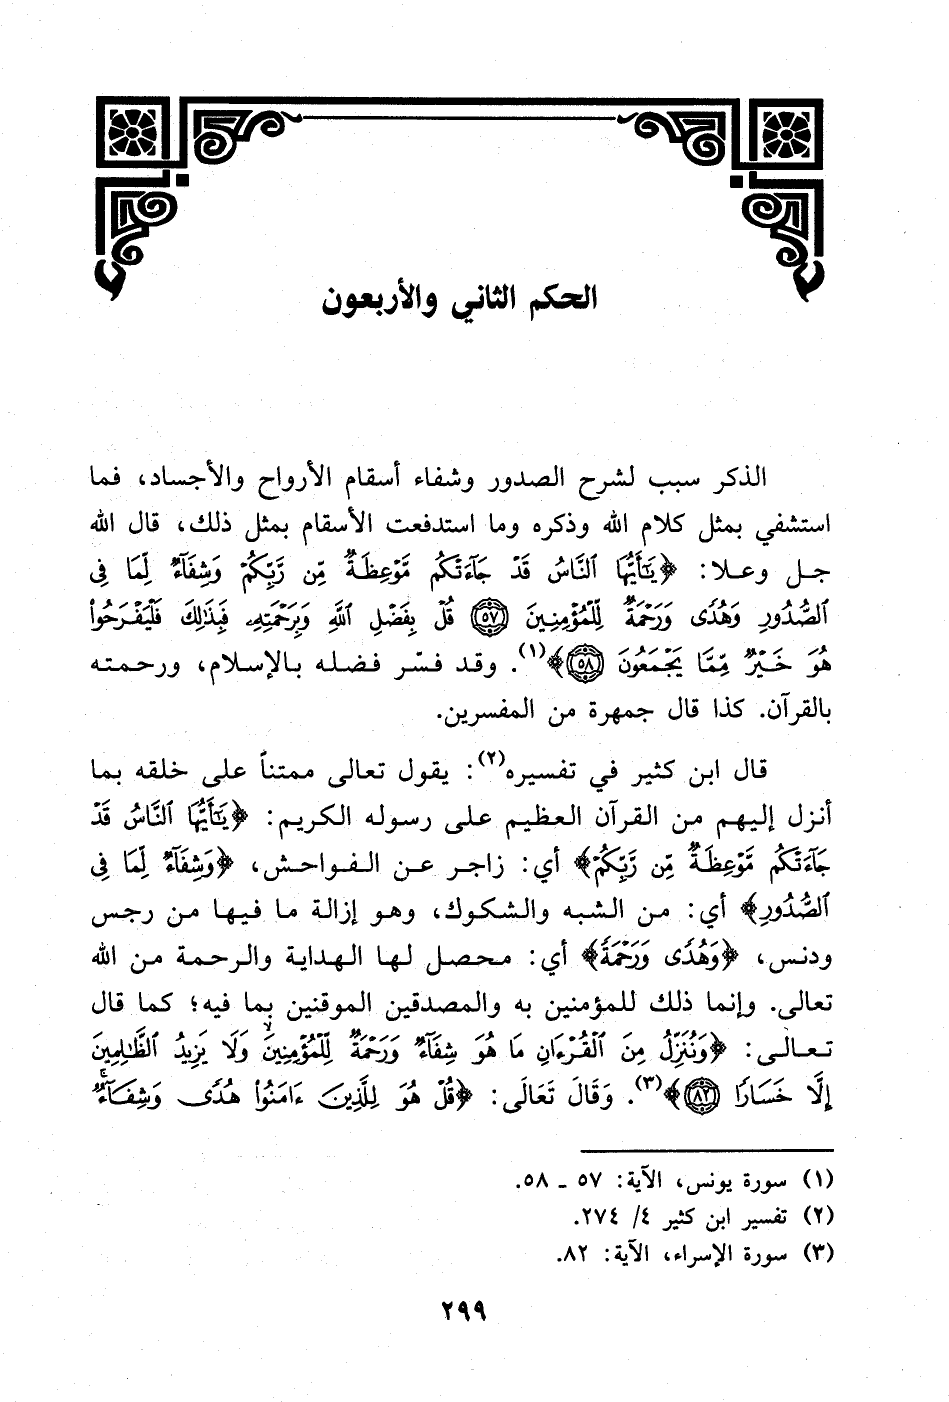 الحكم الثاني والأربعون
الذكر سبب لشرح الصدور وشفاء أسقام الأرواح والأجساد، فما
استشفي بمثل كلام الله وذكره وما استدفعت الأسقام بمثل ذلك، قال الله
جل وعلا: ﴿يَٰٓأَيُّهَا ٱلنَّاسُ قَدۡ جَآءَتۡكُم مَّوۡعِظَةٞ مِّن رَّبِّكُمۡ وَشِفَآءٞ لِّمَا فِي
ٱلصُّدُورِ وَهُدٗى وَرَحۡمَةٞ لِّلۡمُؤۡمِنِينَ ٥٧ قُلۡ بِفَضۡلِ ٱللَّهِ وَبِرَحۡمَتِهِۦ فَبِذَٰلِكَ فَلۡيَفۡرَحُواْ
هُوَ خَيۡرٞ مِّمَّا يَجۡمَعُونَ ٥٨﴾(١). وقد فسّر فضله بالإسلام، ورحمته
بالقرآن. كذا قال جمهرة من المفسرين.
قال ابن كثير في تفسيره(٢): يقول تعالى ممتناً على خلقه بما
أنزل إليهم من القرآن العظيم على رسوله الكريم: ﴿يَٰٓأَيُّهَا ٱلنَّاسُ قَدۡ
جَآءَتۡكُم مَّوۡعِظَةٞ مِّن رَّبِّكُمۡ﴾ أي: زاجر عن الفواحش، ﴿وَشِفَآءٞ لِّمَا فِي
ٱلصُّدُورِ﴾ أي: من الشبه والشكوك، وهو إزالة ما فيها من رجس
ودنس، ﴿وَهُدٗى وَرَحۡمَةٞ﴾ أي: محصل لها الهداية والرحمة من الله
تعالى. وإنما ذلك للمؤمنين به والمصدقين الموقنين بما فيه؛ كما قال
تعالى: ﴿وَنُنَزِّلُ مِنَ ٱلۡقُرۡءَانِ مَا هُوَ شِفَآءٞ وَرَحۡمَةٞ لِّلۡمُؤۡمِنِينَ وَلَا يَزِيدُ ٱلظَّٰلِمِينَ
إِلَّا خَسَارٗا ٨٢﴾(٣). وَقَالَ تَعَالَى: ﴿قُلۡ هُوَ لِلَّذِينَ ءَامَنُواْ هُدٗى وَشِفَآءٞۚ
(١) سورة يونس، الآية: ٥٧ ـ ٥٨.
(٢) تفسير ابن كثير ٤/ ٢٧٤.
(٣) سورة الإسراء، الآية: ٨٢.
٢٩٩